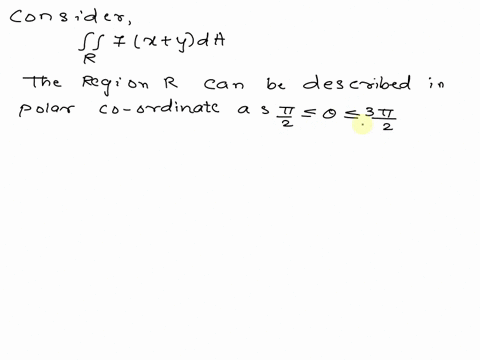 Consider,
∬ 7(x+y)dA
R
The Region R can be described in
polar co-ordinate as π/2 ≤ θ ≤ 3π/2